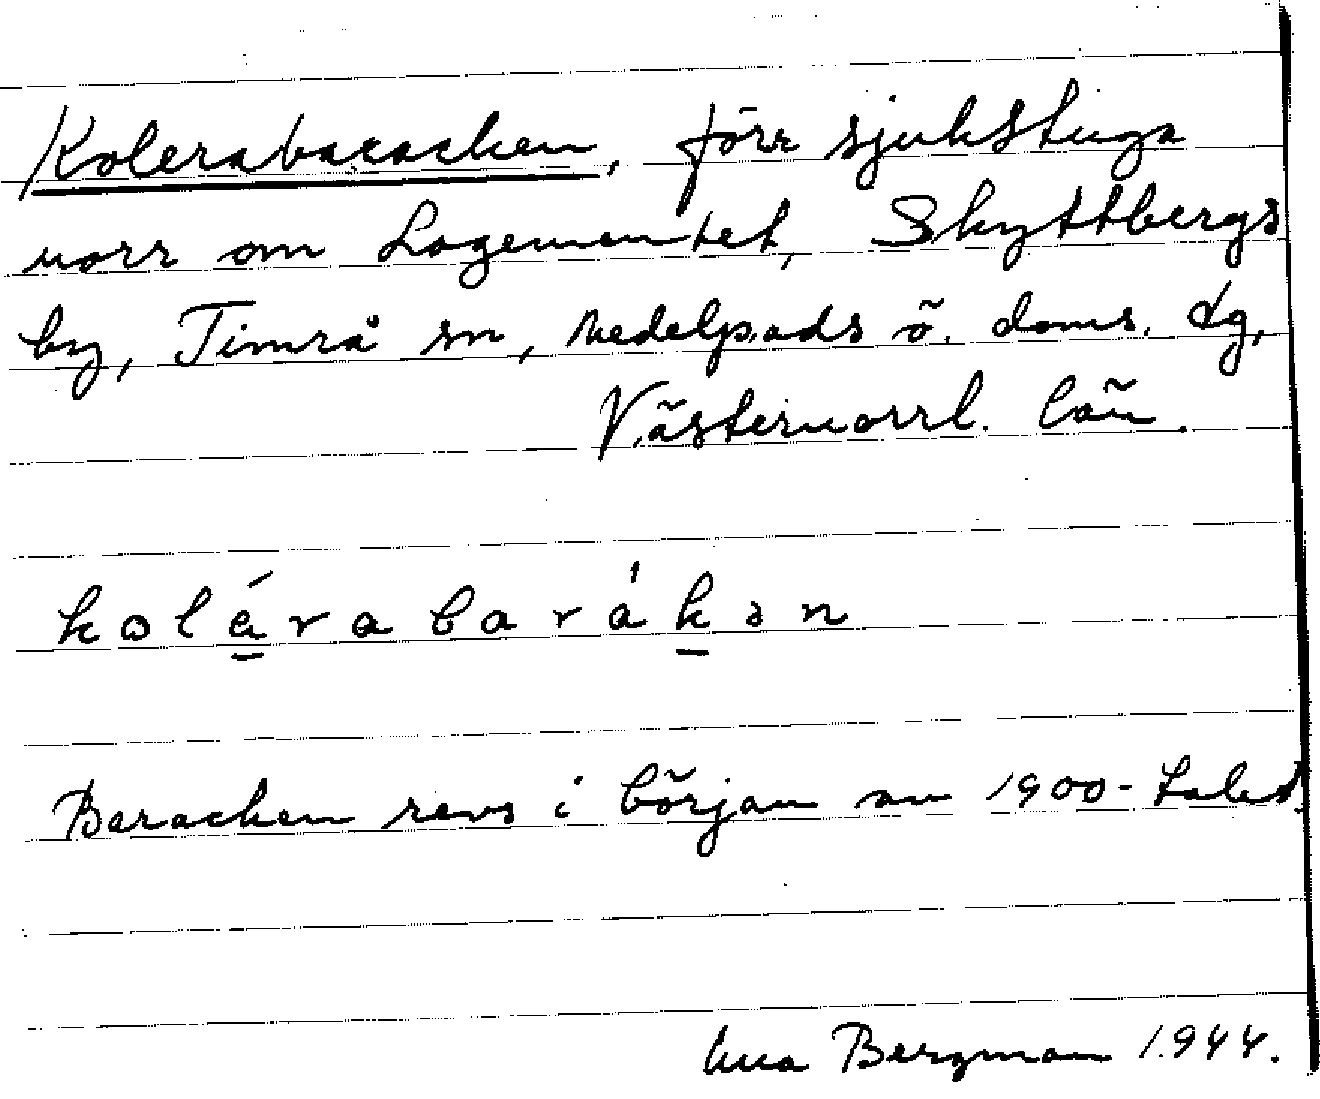 Kolerabaracken, förr sjukstuga
norr om Logementet, Skyttbergs
by, Timrå sn, Medelpads ö. doms. dg,
Västernorrl. län.
kolä́rabarákən
Baracken revs i början av 1900-talet.
Bergman 1944.